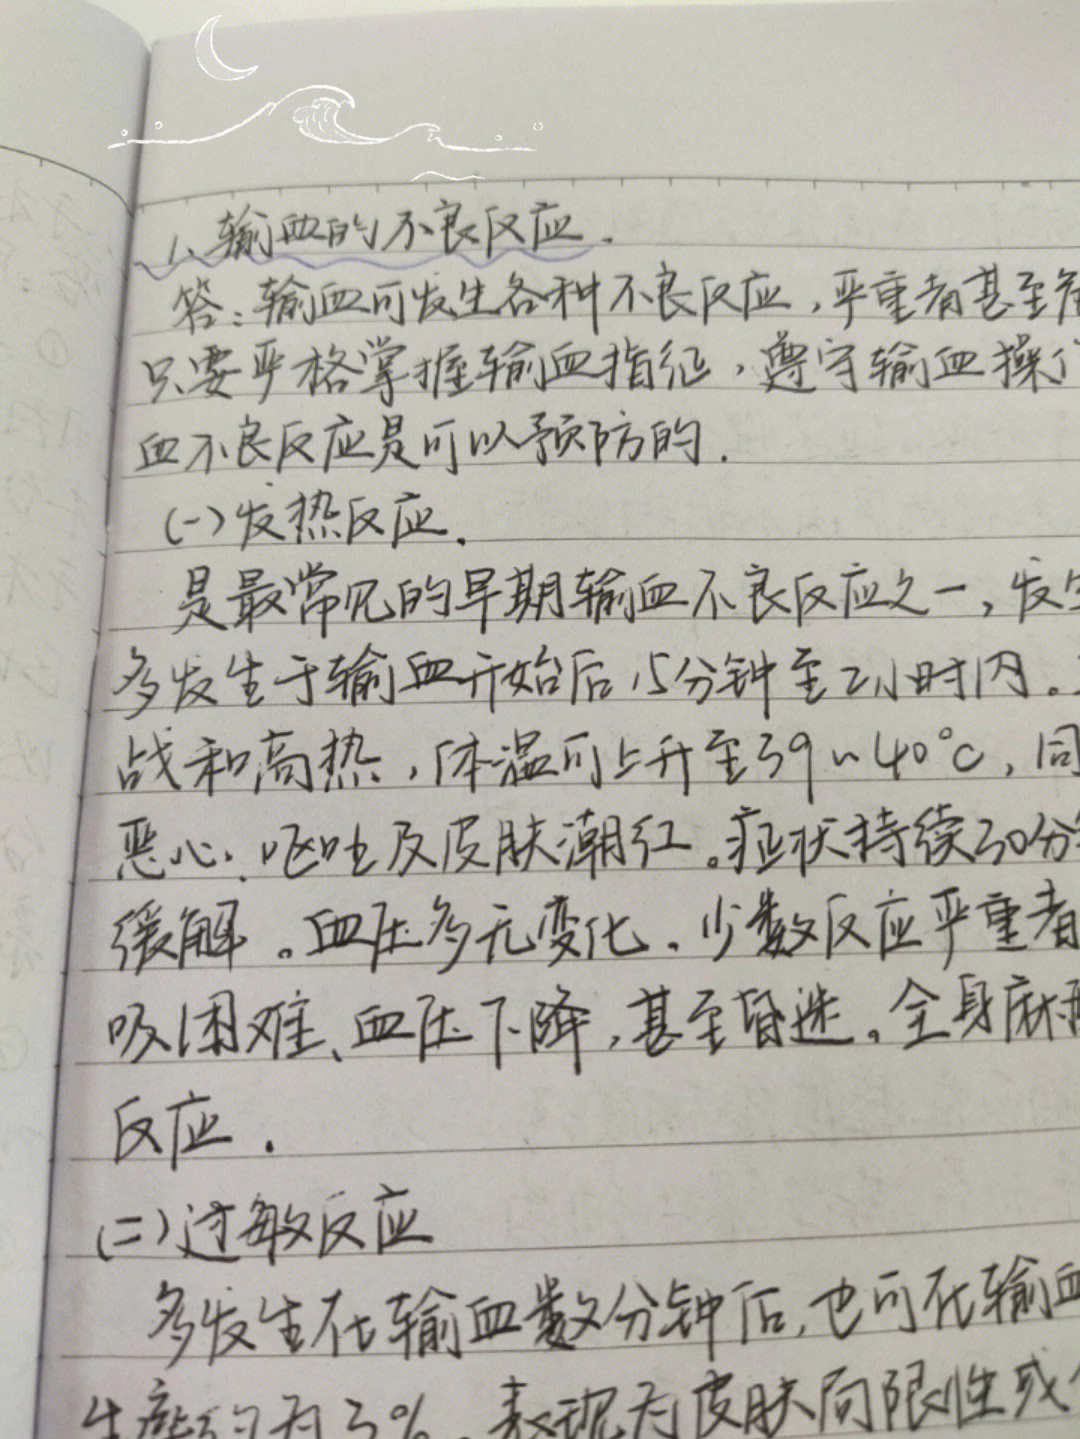 1、输血的不良反应.
答:输血可发生各种不良反应,严重者甚至危
只要严格掌握输血指征,遵守输血操作
血不良反应是可以预防的.
(一)发热反应.
是最常见的早期输血不良反应之一,发生
多发生于输血开始后15分钟至2小时内。
战和高热,体温可上升至39~40°C,同
恶心、呕吐及皮肤潮红。症状持续30分钟
缓解。血压多无变化.少数反应严重者
吸困难、血压下降,甚至昏迷。全身麻
反应.
(二)过敏反应
多发生在输血数分钟后,也可在输血
生率约为3%.表现为皮肤局限性或